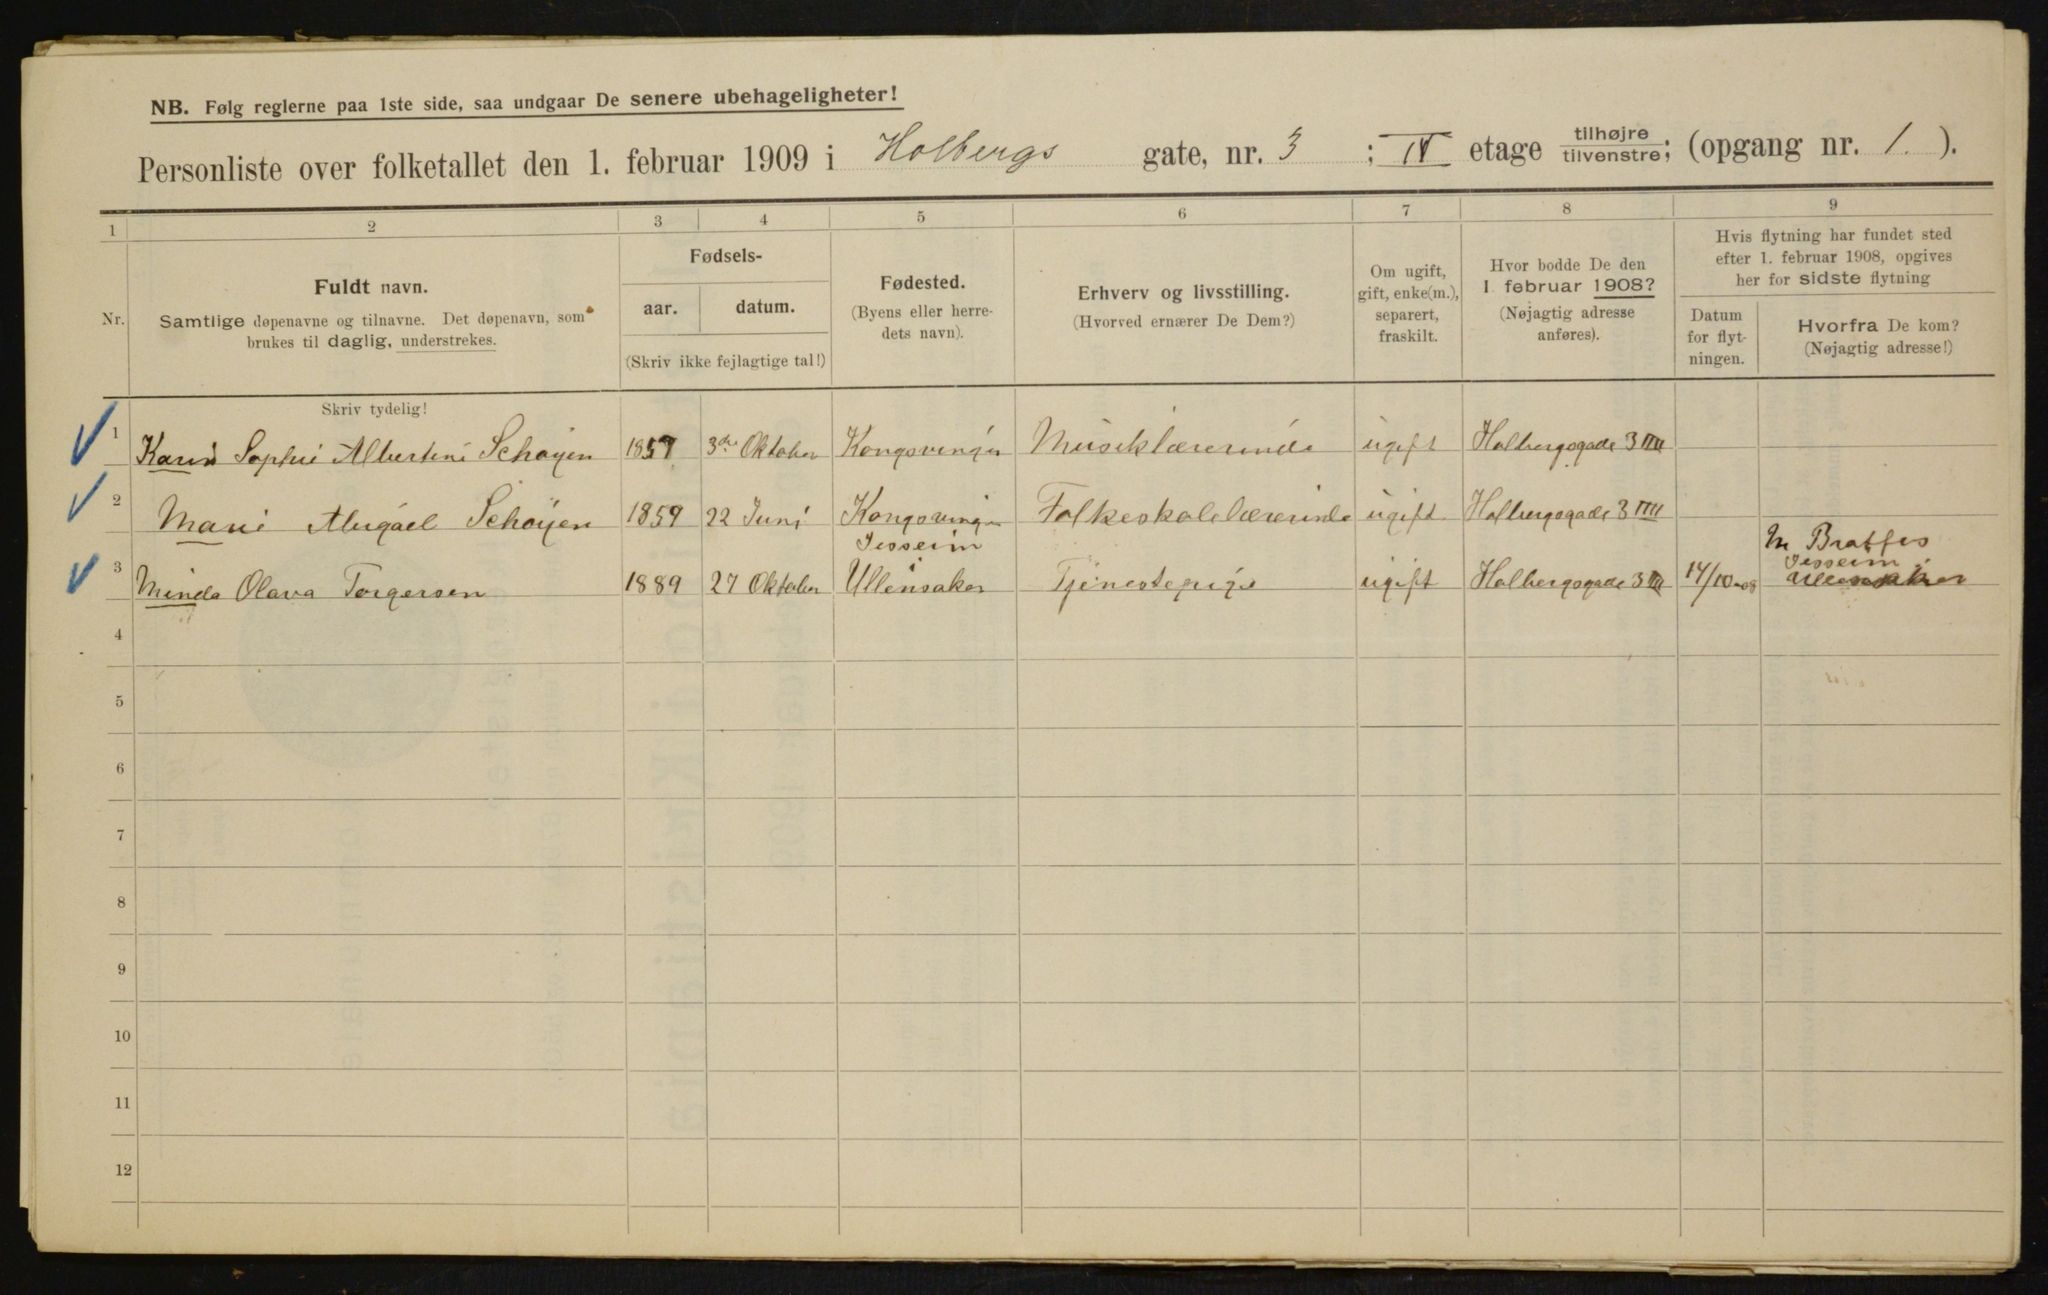 NB. Følg reglerne paa 1ste side, saa undgaar De senere ubehageligheter!
Personliste over folketallet den 1. februar 1909 i Holbergs gate, nr. 3 ; IV etage tilhøjre tilvenstre; (opgang nr. 1. ).
1 2 3 4 5 6 7 8 9
Nr.
Fuldt navn.
Samtlige døpenavne og tilnavne. Det døpenavn, som
brukes til daglig, understrekes.
Fødsels-
aar. datum.
(Skriv ikke fejlagtige tal!)
Fødested.
(Byens eller herre-
dets navn).
Erhverv og livsstilling.
(Hvorved ernærer De Dem?)
Om ugift,
gift, enke(m.),
separert,
fraskilt.
Hvor bodde De den
1. februar 1908?
(Nøjagtig adresse
anføres).
Hvis flytning har fundet sted
efter 1. februar 1908, opgives
her for sidste flytning
Datum
for flyt-
ningen.
Hvorfra De kom?
(Nøjagtig adresse!)
Skriv tydelig!
1 Karen Sophie Albertine Schøyen 1857 3die Oktober Kongsvinger Musiklærerinde ugift Holbergsgade 3 IIII
2 Marie Abigael Schøyen 1859 22 Juni Kongsvinger Folkeskolelærerinde ugift Holbergsgade 3 IIII
Jesseim Braffes
3 Minda Olava Torgersen 1889 27 Oktober Ullensaker Tjenestepige ugift Holbergsgade 3 14/10-08 Jesseim
Ullensaker
4
5
6
7
8
9
10
11
12